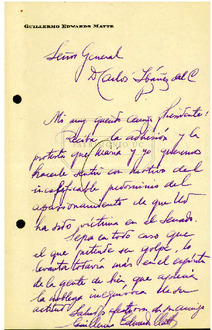 GUILLERMO EDWARDS MATTE
Señor General
D Carlos Ibáñez del C
Mi muy querido amigo y Presidente:
Reciba la adhesión y la
protesta que María y yo queremos
hacerle sentir con motivo del
incalificable
apasionamiento de que Ud
ha sido víctima en el Senado.
Sepa en todo caso que
el que pretende ser golpe, lo
levanta todavía más en el espíritu
de la gente de bien que aprecia
la nobleza ingénita de su
actitud
Saluda afectuosamente su amigo
Guillermo Edwards Matte